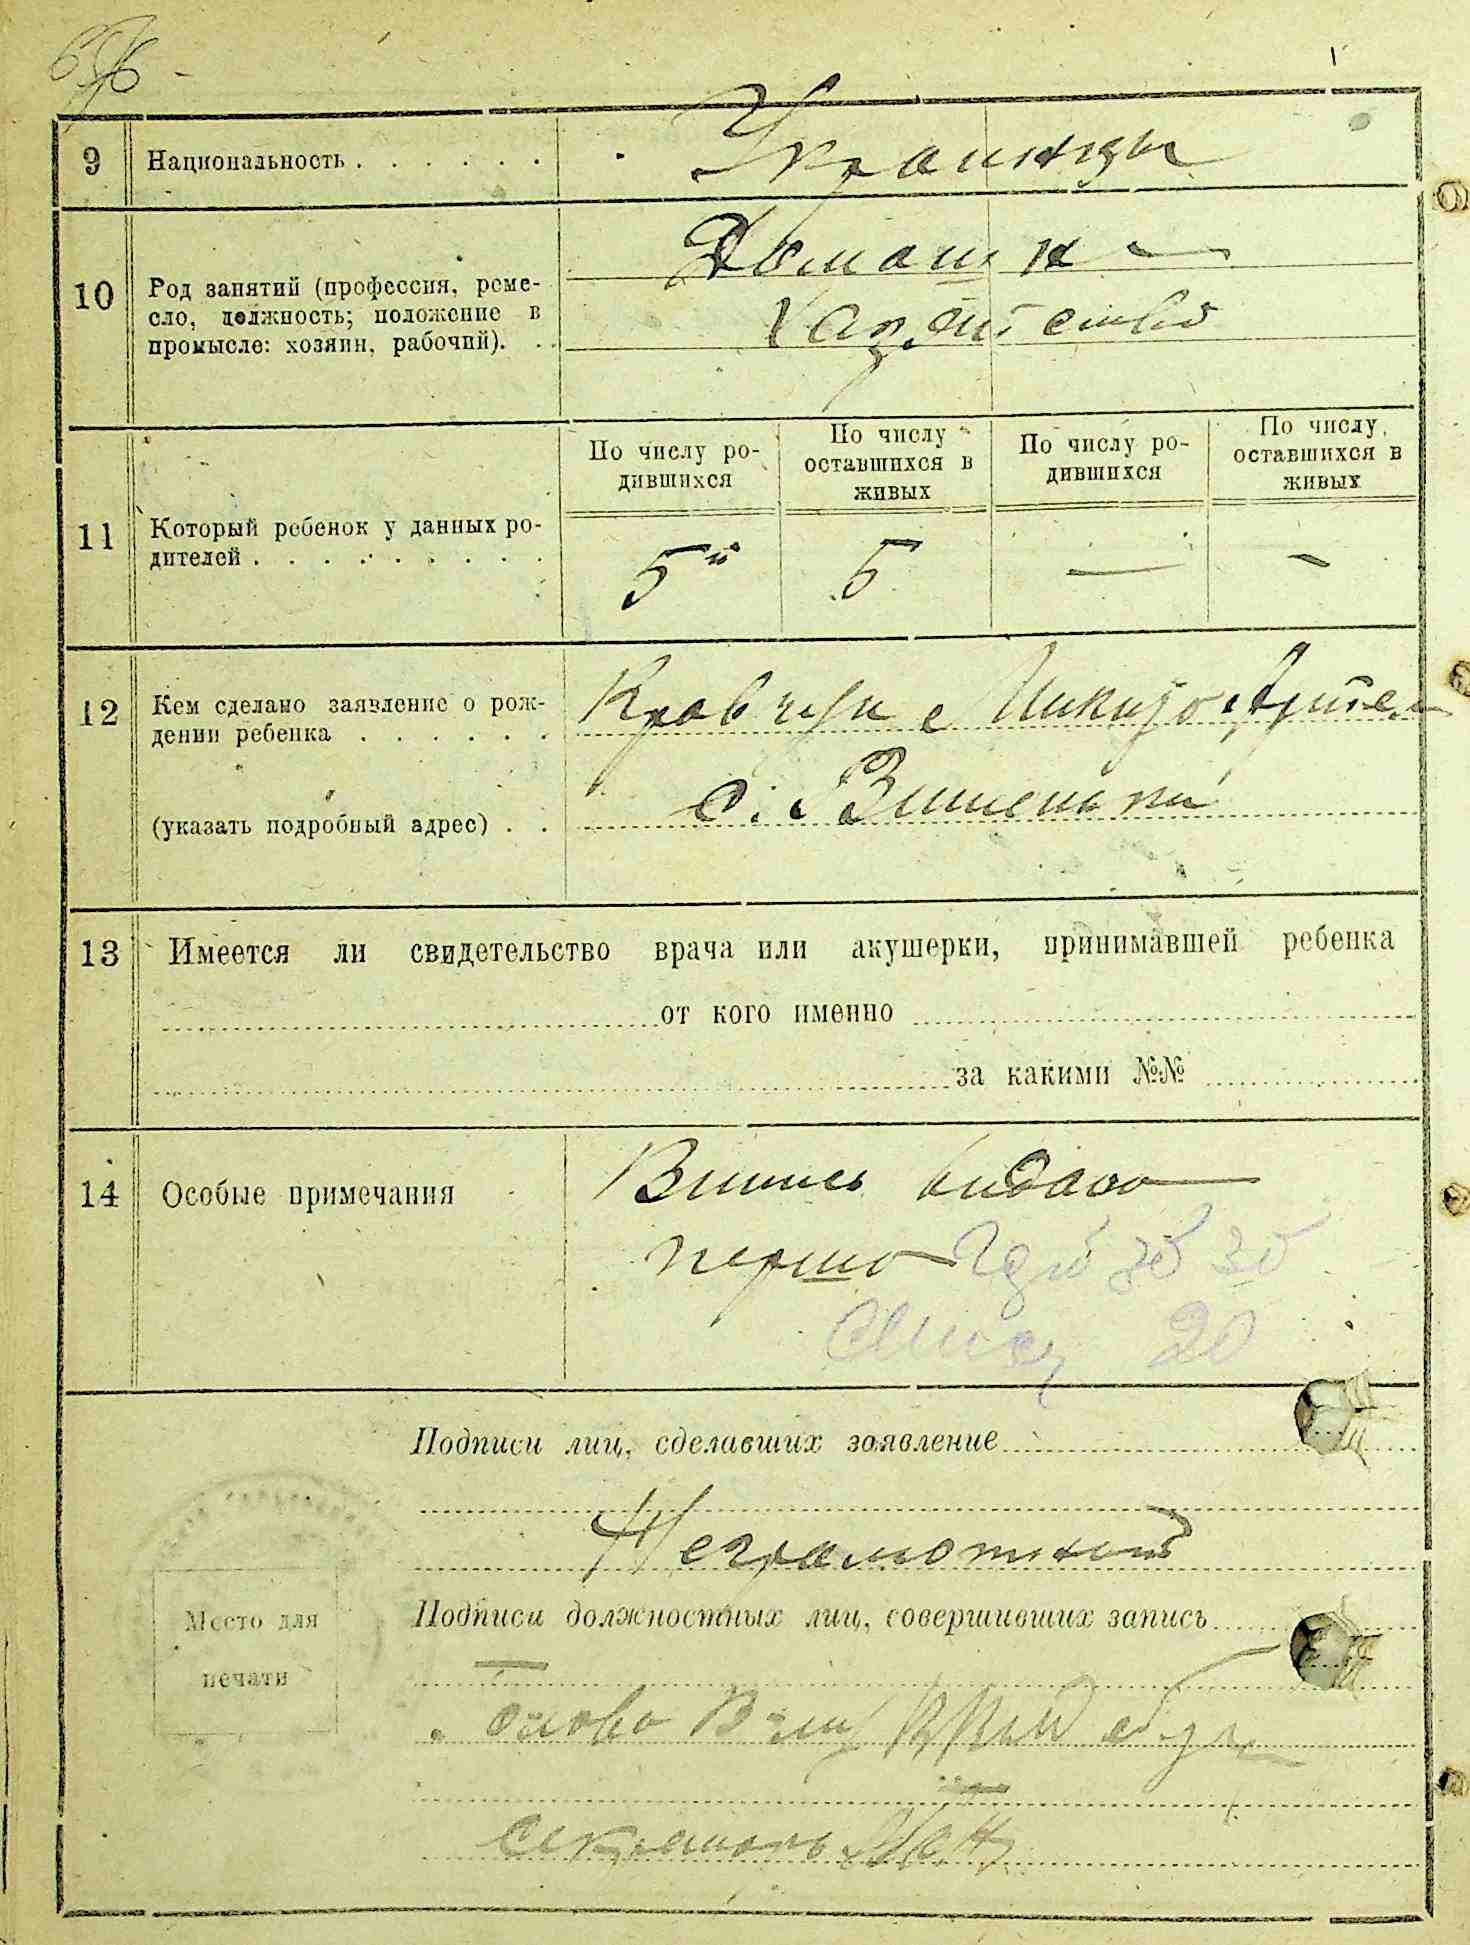 9 Национальность . . . . . .
Украинцы
10 Род занятий (профессия, реме-
сло, должность; положение в
промысле: хозяин, рабочий). . .
Домашн
11 Который ребенок у данных ро-
дителей . . . . . . . . .
По числу ро-
дившихся
По числу
оставшихся в
живых
По числу ро-
дившихся
По числу
оставшихся в
живых
5й 5 — —
12 Кем сделано заявление о рож-
дении ребенка . . . . . .
(указать подробный адрес) . .
с. Вишеньки
13 Имеется ли свидетельство врача или акушерки, принимавшей ребенка
от кого именно
за какими №№
14 Особые примечания
видано
першо
20
Подписи лиц, сделавших заявление
Неграмотный
Подписи должностных лиц, совершивших запись
Место для
печати
Голова
Секретарь